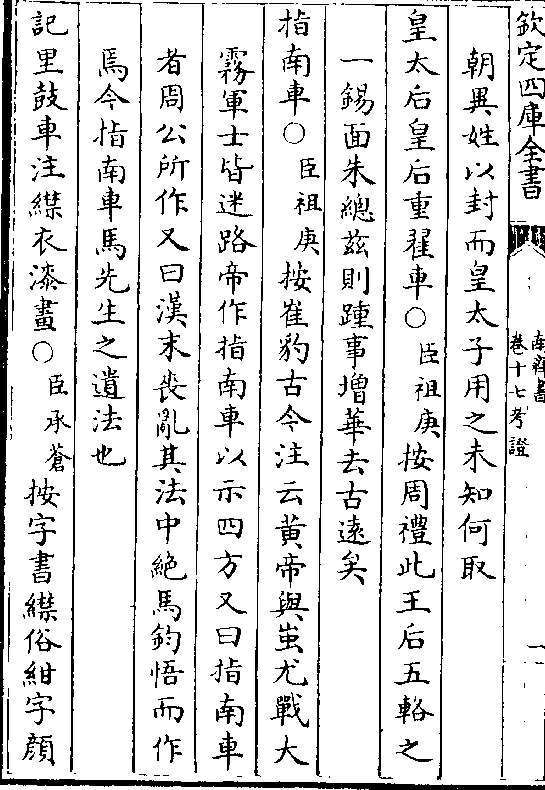 欽定四庫全書
南齊書
卷十七考證
一
朝異姓以封而皇太子用之未知何取
皇太后皇后重翟車○臣祖庚按周禮此王后五輅之
一錫面朱總兹則踵事增華去古遠矣
指南車○臣祖庚按崔豹古今注云黄帝與蚩尤戰大
霧軍士皆迷路帝作指南車以示四方又曰指南車
者周公所作又曰漢末喪亂其法中絶馬鈞悟而作
焉今指南車馬先生之遺法也
記里鼓車注緤衣漆畫○臣承蒼按字書緤俗紺字顔